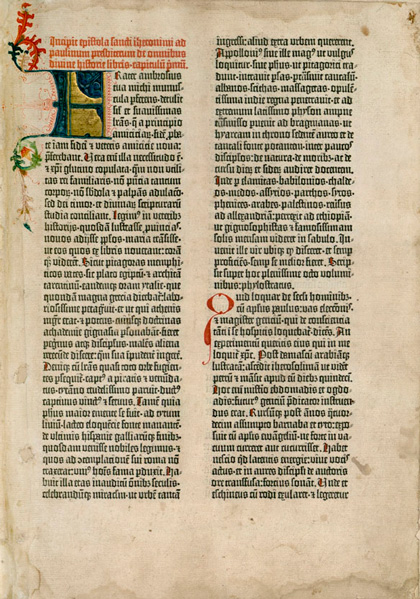 Incipit epistola sancti iheronimi ad
paulinum presbiterum de omnibus
divine historie libris. capitulū pͥmū.
Frater ambrosius
tua michi munus-
cula p̄ferens. detulit
sil̕ et suavissimas
lr̄as. q̄ a principio
amiciciaꝝ. fidē ꝓba-
te iam fidei ⁊ veteris amicicie nova:
p̄ferebant. Vera enī illa necessitudo ē.
⁊ xp̄i glutino copulata. qm̄ non vtili-
tas rei familiaris. nō p̄ncia tantum
corpoꝝ. nō sbdola ⁊ palpās adulaco.
sed dei timor. et divinaꝝ scripturarū
studia conciliant. Legimꝰ in veteribꝫ
historijs. quosdā lustrasse ꝓvincias.
novos adijsse ꝓplos. maria transisse.
ut eos quos ex libris noverant: corā
qꝫ vidērēt. Sicut pitagoras memphi-
ticos vates. sic plato egiptū. ⁊ architā
tarentinū. eandēqꝫ oram ytalie. que
quondam magna grecia dicebat̕: labo-
riosissime peragͣvit. et ut qui athenis
mgr̄ erat. ⁊ potens. cuiusqꝫ doctrinas
achademie gignasia ꝑsonabāt. fieret
peregrinꝰ atqꝫ discipulus. malens aliena
verecunde discere: qͣꝫ sua īpudent̕ ingere.
Deniqꝫ cū l̄ras quasi toto orbe fugien-
tes ꝑsequit̕. captꝰ a piratis ⁊ venunda-
tus. tyrāno crudelissimo paruit. ductꝰ
captivus vinctꝰ ⁊ servus. Tamē quia
phūs maior emente se fuit. ad tytum
liviū. lacteo eloquētie fonte manantē.
de vltimis hispanie galliarūqꝫ finibꝫ.
quosdam venisse nobiles legimus. ⁊
quos ad ꝯtemplationē sui roma nō
traxerat: uniꝰ hoīs fama ꝑduxit. Ha-
buit illa etas inauditū om̄ibꝫ seculis.
celebrandūqꝫ miraclm̄. ut vrbē tantā
ingressi: aliud extra vrbem quererent.
Appolloniꝰ sive ille magꝰ ut vulgus
loquitur. sive phūs. ut pitagorici tra-
dunt. intravit ꝑsas. ꝑtrāsivit caucasū.
albanos. scithas. massagetas. opulē-
tissima indie regna penetravit. ⁊ ad
extremum latissimo physon ampne
trāsmisso ꝑvenit ad bragmanas. ut
hyarcam in throno sedentē aureo ⁊ de
tantali fonte potantem. inter paucos
discipulos. de natura. de moribꝫ. ac de
cursu dierꝫ ⁊ siderꝫ audiret docentem.
Inde ꝑ elamitas. babilonios. chalde-
os. medos. assyrios. parthos. syros.
phenices. arabes. palestinos. reversus
ad allexandriā: perrexit ad ethiopiā.
ut gignosophistas ⁊ famosissimam
solis mensam videret in sabulo. In-
venit ille vir ubiqꝫ qd̕ disceret. et semꝑ
proficiēs. semꝑ se melior fieret. Scrip-
sit super hoc plenissime octo volumi-
nibus: phylostratus.
Quid loquar de sec̄li hominibꝫ.
cū apl̄us paulus. vas elecconīs.
⁊ magister gentiū. qui de conscientia
tanti i se hospitis loquebat̕. dicens. An
experimentū queritis eius qui in me
loquit̕ xp̄c. Post damascū arabiāqꝫ
lustratā: ascēdit iherosolimā ut vidēt
petrū ⁊ māsit apud eū diebꝫ quindeci.
Hoc enī misterio ebdomadis et ogdo-
adis: futurꝰ gentiū p̄dicator instruen-
dus erat. Rursūqꝫ post ānos qͣtuor-
decim assumpto barnaba et tyto: expo-
suit cū aplīs evangeliū. ne forte in va-
cuum curreret aut cucurrisset. Habet
nescio qͥd latentis energie: vive vocis
actus. et in aures discipli de auctoris
ore transfusa: fortius sonat. Unde et
eschineus cū rodi exularet. ⁊ legeretur